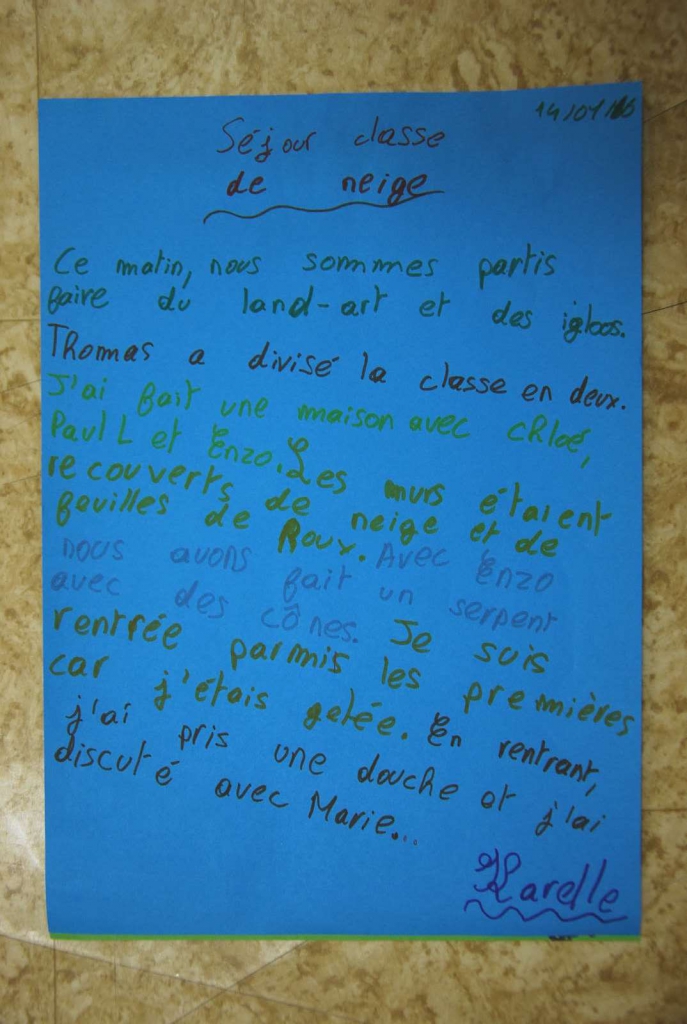 14/01/16
Séjour classe
de neige
Ce matin, nous sommes partis
faire du land-art et des igloos.
Thomas a divisé la classe en deux.
J'ai fait une maison avec chloé,
Paul L et Enzo. Les murs étaient
recouverts de neige et de
feuilles de Houx. Avec Enzo
nous avons fait un serpent
avec des cônes. Je suis
rentrée parmis les premières
car j'étais gelée. En rentrant,
j'ai pris une douche et j'ai
discuté avec Marie...
Karelle